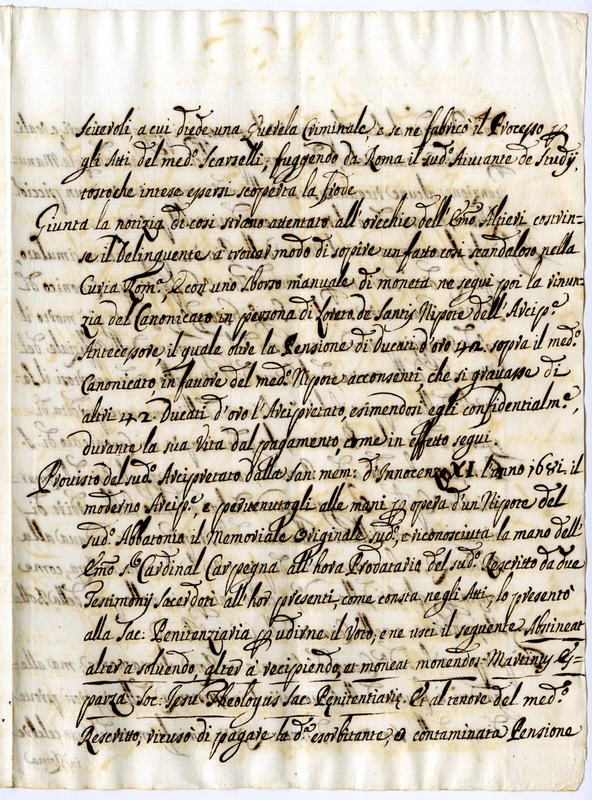 sciceroli, a cui diede una Querela Criminale, e se ne fabricò il Processo p
gli Atti del med.º Scarselli, fuggendo da Roma il sud.º Aiutante de Studÿ,
tosto che intese essersi scoperta la frode
Giunta la notizia di così strano attentato all'orecchie dell'Em̃o Altieri costrin=
se il Delinquente a trovar modo di sopire un fatto così scandaloso nella
Curia Rom.ª, e con uno sborso manuale di moneta ne seguì poi la rinun=
zia del Canonicato in persona di Loreto de Santis Nipote dell'Arcip.ᵉ
Antecessore il quale oltre la Pensione di Ducati d'oro 42. sopra il med.º
Canonicato, in favore del med.º Nipote acconsentì, che si gravasse di
altri 42. Ducati d'oro l'Arcipretato, esimendosi egli confidentialm.ᵉ,
durante la sua Vita dal pagamento, come in effetto seguì.
Provisto del sud.º Arcipretato dalla San: mem: d'Innocenzo XI. l'anno 1681. il
moderno Arcip.ᵉ, e pervenutogli alle mani p opera d'un Nipote del
sud.º Abbatonio il Memoriale Originale sud.º, e riconosciuta la mano dell'
Em̃o S.ʳ Cardinal Carpegna all'hora Prodatario del sud.º Rescritto da due
Testimonÿ Sacerdoti all'hor presenti, come consta negli Atti, lo presentò
alla Sac: Penitenziaria p udirne il Voto, e ne uscì il seguente Abstineat
alter a solvendo, alter a recipiendo, et moneat monendos: Martinus Es=
parza Soc: Jesu Theologus Sac: Penitentiarię. Et al tenore del med.º
Rescritto, ricusò di pagare la d.ª esorbitante, e contaminata Pensione